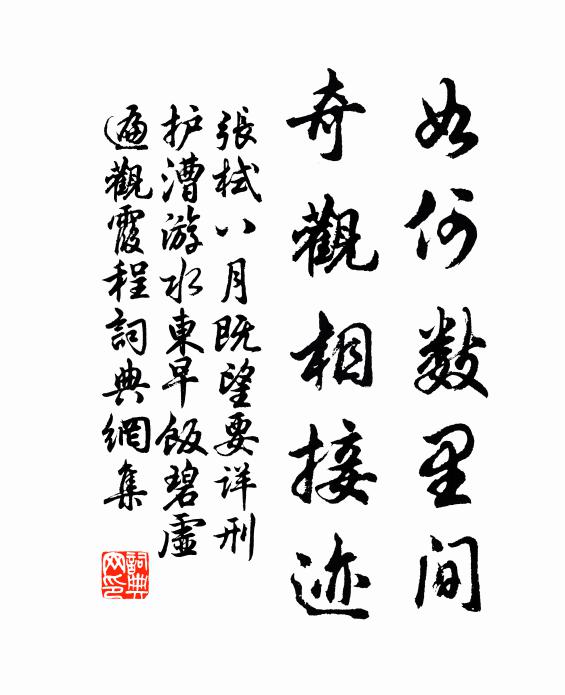 如何数里间
奇觀相接迹
張栻八月既望要详刑
护漕游水東早飯碧虛
遍觀霞程詞典網集
詞典网印